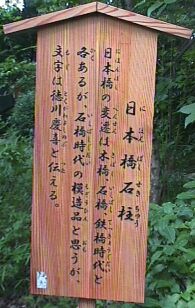 日本橋石柱
日本橋の変遷は木橋、石橋、鉄橋時代と
各あるが、石橋時代の模造品と思うが、
文字は徳川慶喜と伝える。